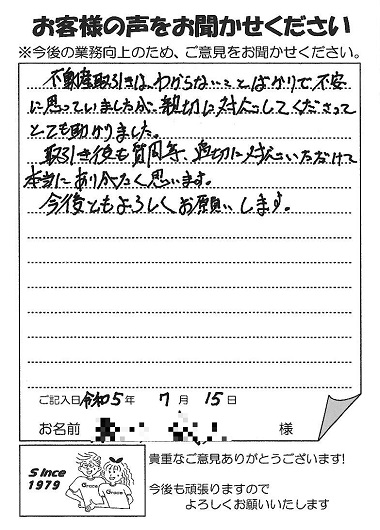 お客様の声をお聞かせください
※今後の業務向上のため、ご意見をお聞かせください。
不動産取引は、わからないことばかりで不安
に思っていましたが、親切に対応してくださって
とても助かりました。
取引き後も質問等、適切に対応いただけて
本当にありがたく思います。
今後ともよろしくお願いします。
ご記入日 令和5年 7月 15日
お名前 様
Since
1979
Grace
Grace
貴重なご意見ありがとうございます!
今後も頑張りますので
よろしくお願いいたします